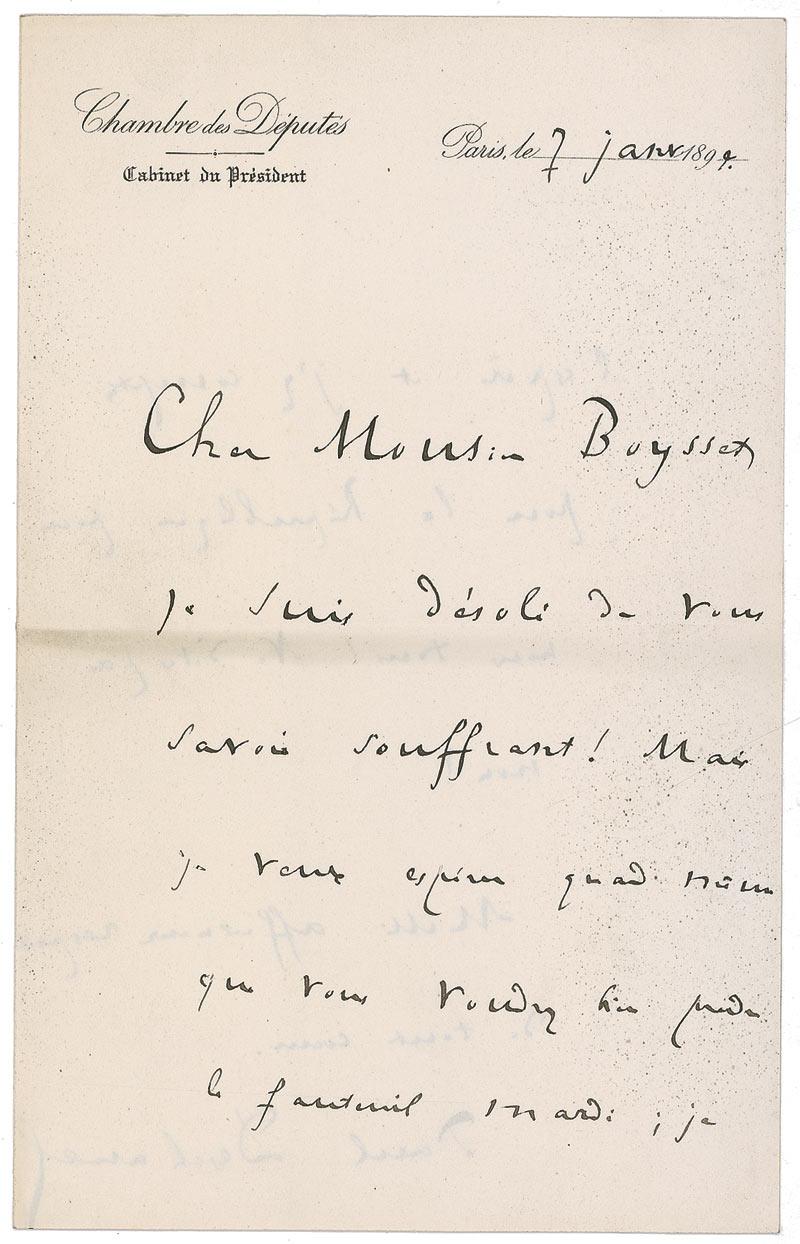 Chambre des Députés
Cabinet du Président
Paris, le 7 janv 1899.
Cher Monsieur Boysset,
je suis désolé de vous
savoir souffrant ! Mais
je veux espérer quand même
que vous voudrez bien prendre
le fauteuil mardi ; je